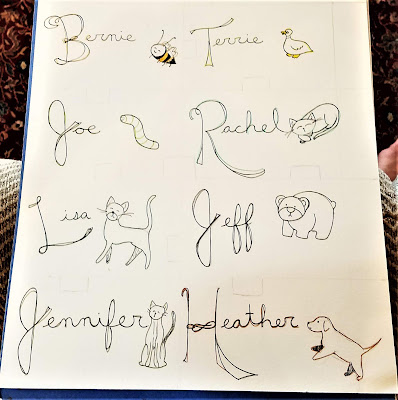 Bernie Terrie
Joe Rachel
Lisa Jeff
Jennifer Heather